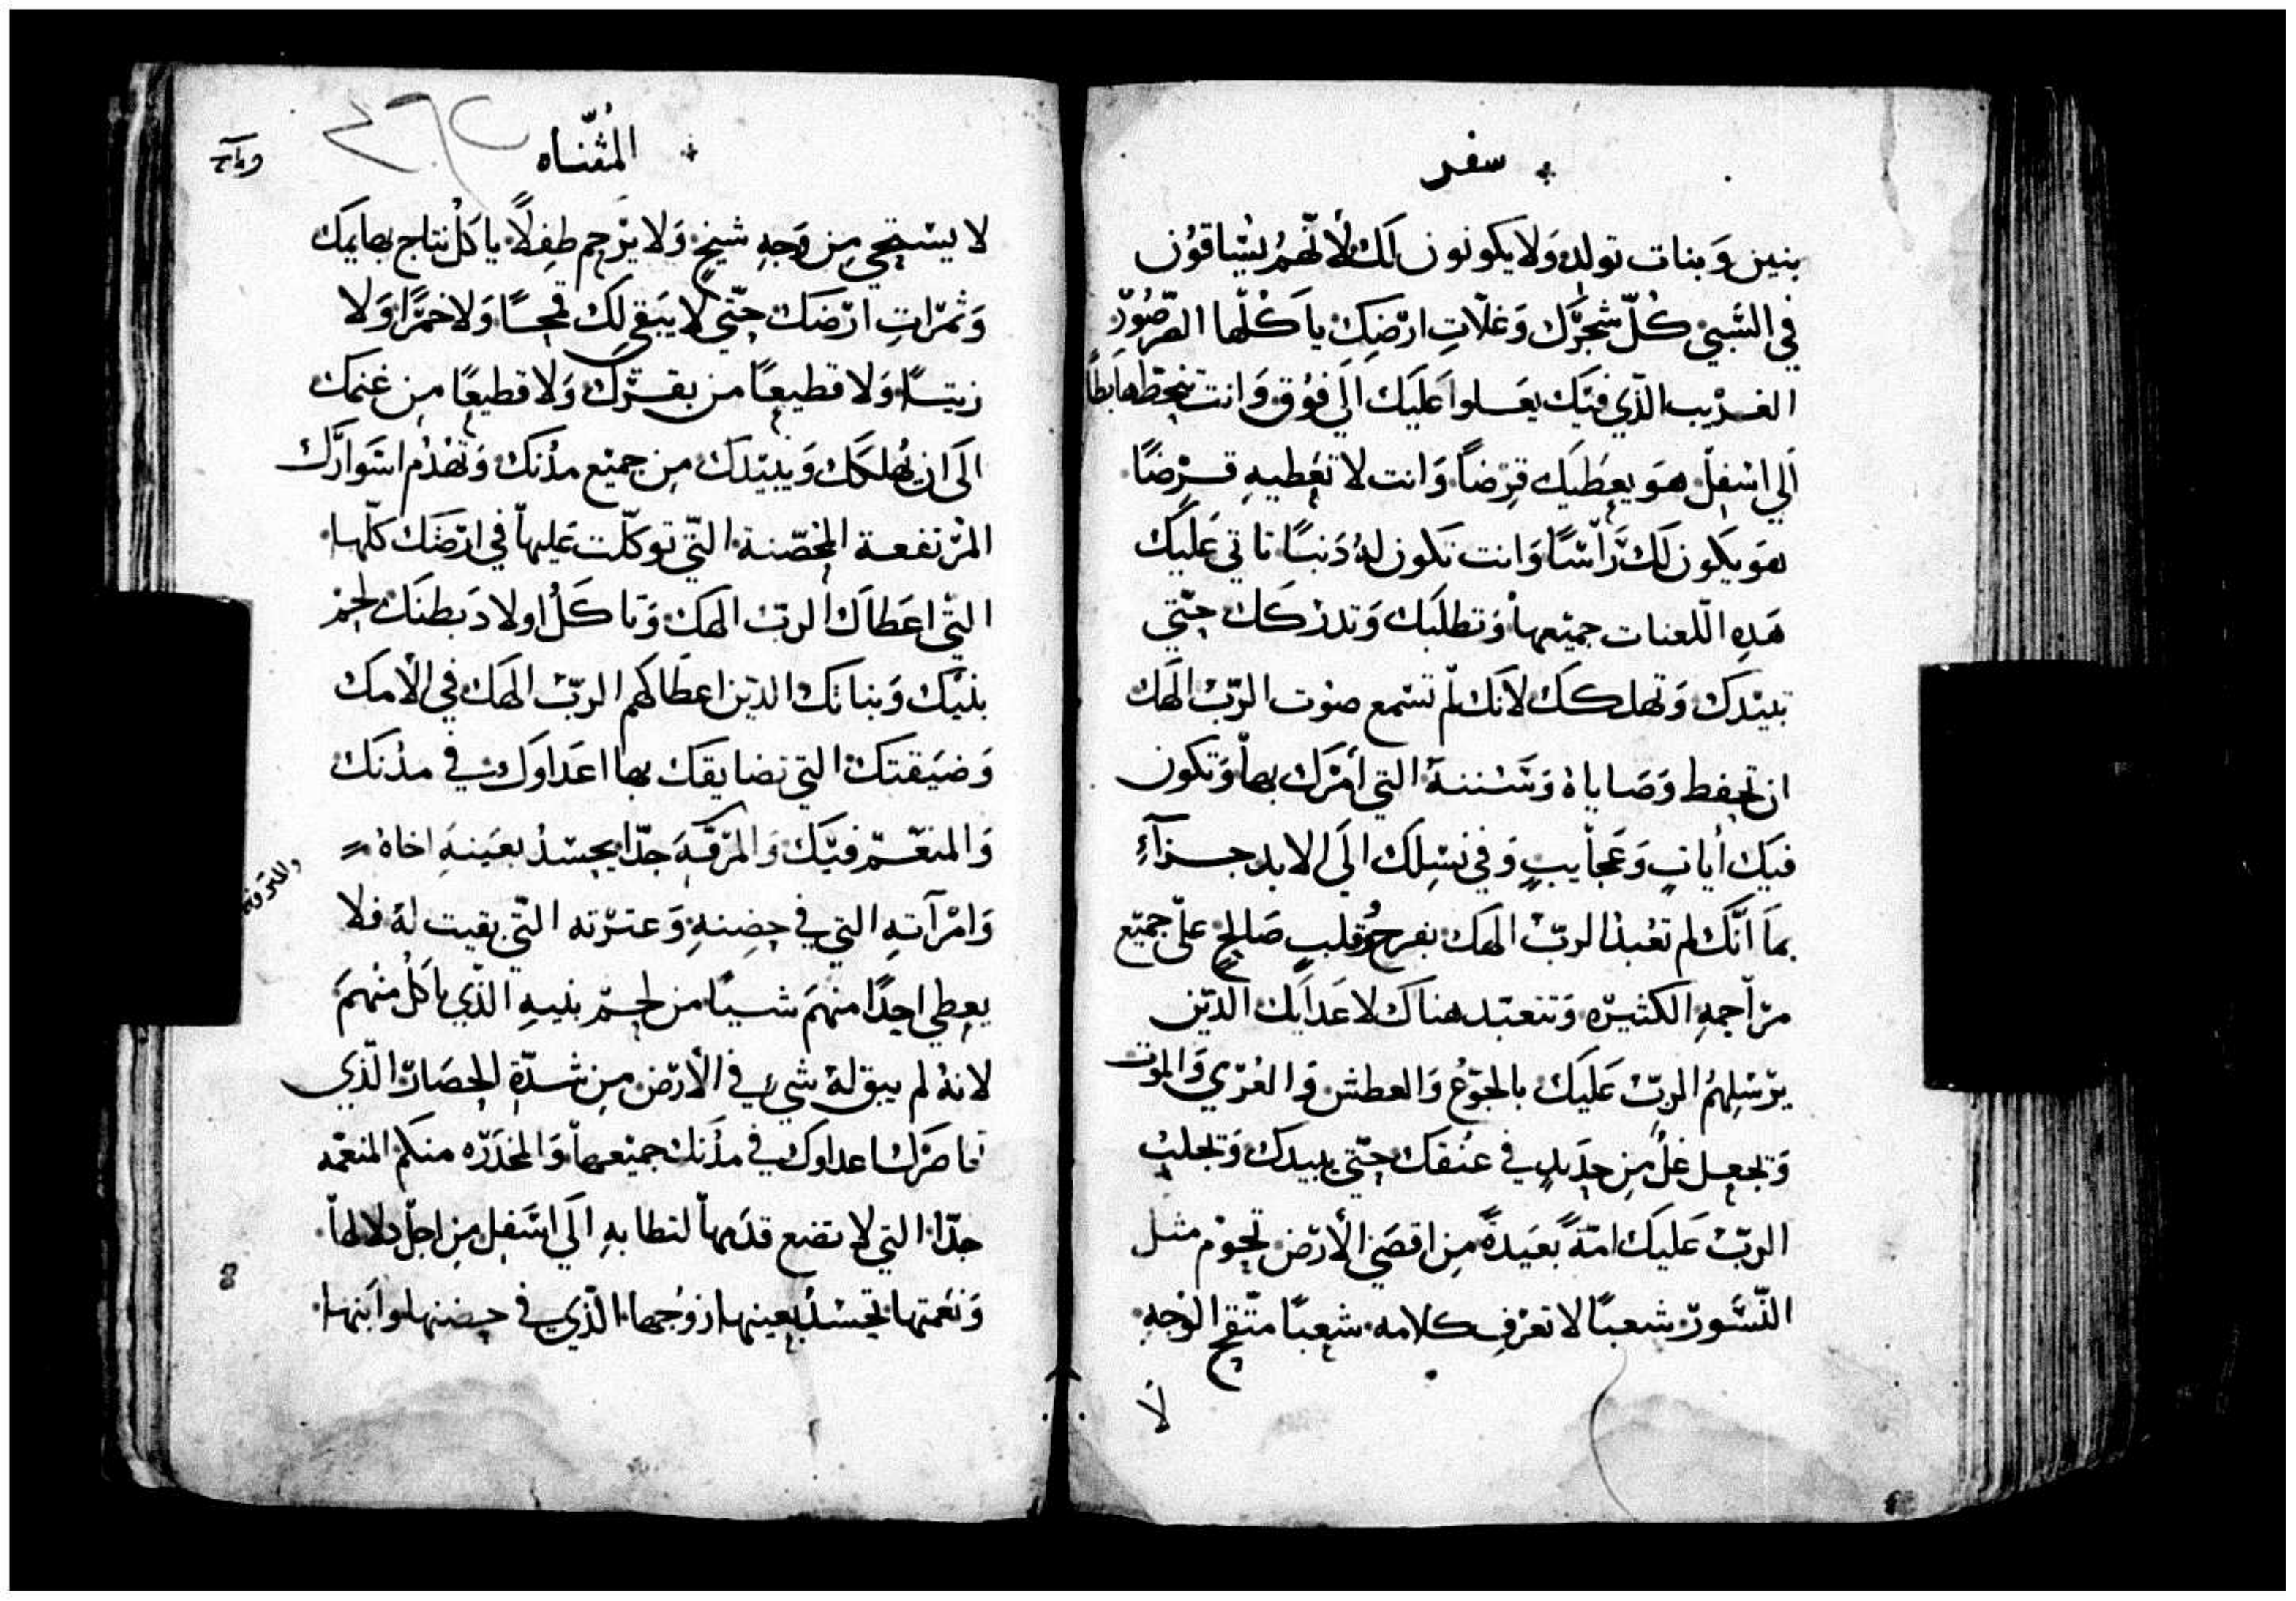 سفر
بنين وَبنات تولد وَلا يكونون لك لأنّهم يُسَاقوُن
في السَّبي كُلّ شجَرَك وَغلّاتِ ارْضِكَ ياكلها الصّرصُور
الغريب الذّي فيَك يعَلوا عَليَك الَي فوُق وَانت تنحِط هابطاً
الَي اسْفل هوَ يعِطيَك قرضاً وَانت لا تعِطيهِ قرضًا
هوَ يكون لَك رَأسًا وَانت تكون لهُ دَنبًا تاتي عَليَك
هَدهِ اللّعنات جميعها وَتطلبَك وَتدركَك حتّي
تبيدَك وَتهلكَك لانَك لم تسْمع صوْت الربّ الهَك
ان تحفط وَصَاياهُ وَسَننهَ التي أمَرَك بها وَتكون
فيَك أياتٍ وَعجَايبٍ وَفي نسْلِك الَي الابد جزآءِ
بمَا انّكَ لم تعُبد الربّ الهك بفرحٍ وقلبٍ صَالحٍ علَي جميع
مرَاحمهِ الكثيره وَتتعبّد هناكَ لاعَدايَك الدّين
يرْسلهمُ الربّ عَليَك بالجوُع وَالعطش وَالعُرْي وَالموْت
وَتجعل غلُ من حدَيدٍ في عنُقك حتّي يبيدك وَتجلبُ
الربّ عَليَك امّةً بعَيدةً مِن اقصَي الأرْض تحوْم مثل
النّسَور شعبًا لا تعرْف كلامه شعبًا متّقح الوَجهِ
لا
المُثنّاه
لا يسْتحي مِن وَجهِ شيخٍ وَلا يرْحِم طِفلاً ياكلُ نتاج بهايمك
وَثمرَاتِ ارْضَك حتّي لا يَبقي لك قمحًا وَلا خمَرًا وَلا
زيتًا وَلا قطيعًا من بقرك وَلا قطيعًا مِن غنمك
الَى ان يُهلكَك وَيبيْدك مِن جميْع مدُنَك وَتهْدُم اسَوارَك
المرْتفعة المحصّنة التّي توَكّلت عَليها في ارْضَك كلّها
التّي اعَطاكَ الربّ الهك وَتاكَلُ اولادَ بَطنَك لحمْ
بنيْك وَبناتك الديْن اعطَاكهم الربّ الهَك في الأمك
وَضيَقتَك التي تضايقَك بها اعَداوَك في مدُنَك
وَالمنعّم فيْك وَالمرَفّهَ جدّا يحِسْدُ بعَينهَ اخاهُ
والمترفه
وَامْرآتهِ التي في حضِنهِ وَعترْته التّي بقيت لهُ فلا
يعطي احِدًا منهمَ شيًا من لحمْ بنيهِ الذّي ياكلُ منْهمَ
لانهُ لم يبق لهُ شيٍ في الأرْض مِن شدّةِ الحِصَار الّذي
حَاصَرَك اعداوك في مدُنَك جميْعها وَالمخدَرَه منكم المنعّمه
جدّا التي لا تضع قدَمها لتطا بهِ الَي اسَفل مِن اجلّ دلالها
وَنعَمتها تحِسْدُ بعينها زوُجها الّذي في حضنها وابنها